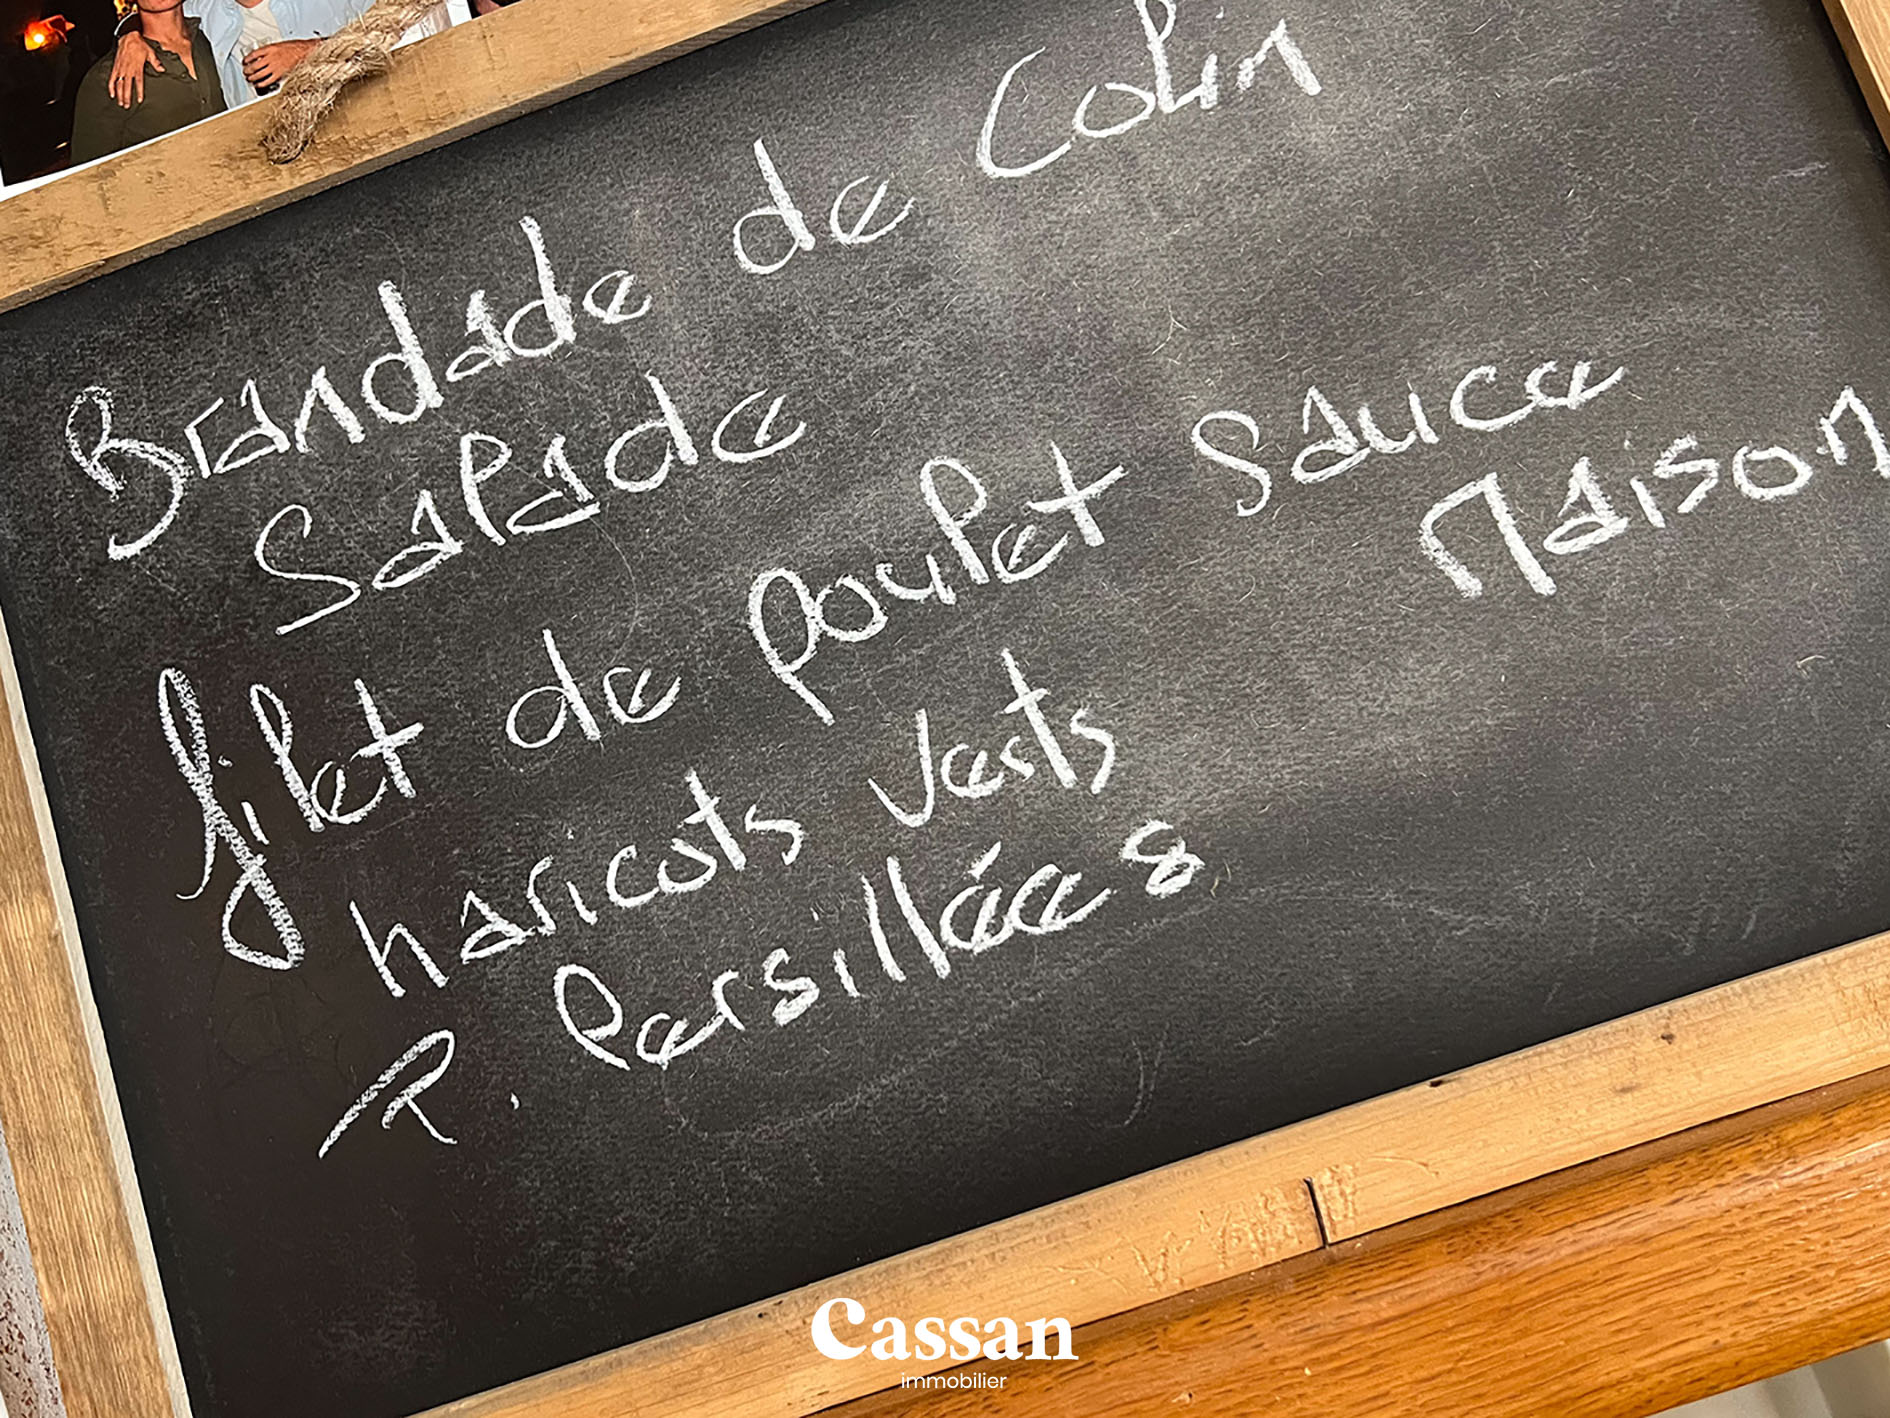 Brandade de Colin
Salade
filet de poulet Sauce
Maison
haricots verts
P. Persillées
Cassan
immobilier